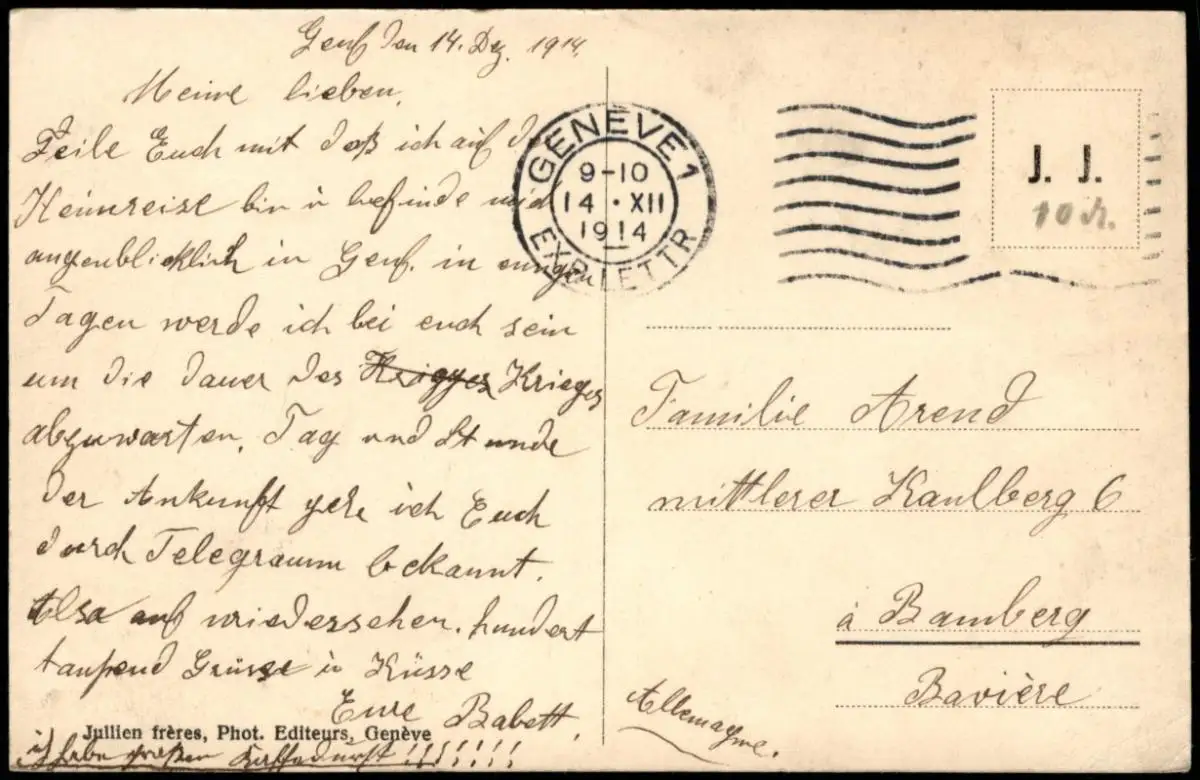 Genf den 14. Dez. 1914.
Meine lieben.
Teile Euch mit daß ich auf d
Heimreise bin u befinde mich
augenblicklich in Genf. in einigen
Tagen werde ich bei euch sein
um die dauer des Kriegges Krieges
abzuwarten. Tag und Stunde
der Ankunft gebe ich Euch
durch Telegramm bekannt.
Also auf wiedersehen. hundert
taußend Grüsse u Küsse
Eure Babett.
Jullien frères, Phot. Editeurs, Genève
ich habe großen Kaffedurst!!!!!!!!
GENÈVE 1
9-10
14 · XII
1914
EXP. LETTR
J. J.
10 M.
Familie Arend
mittlerer Kaulberg 6
à Bamberg
Bavière
Allemagne.